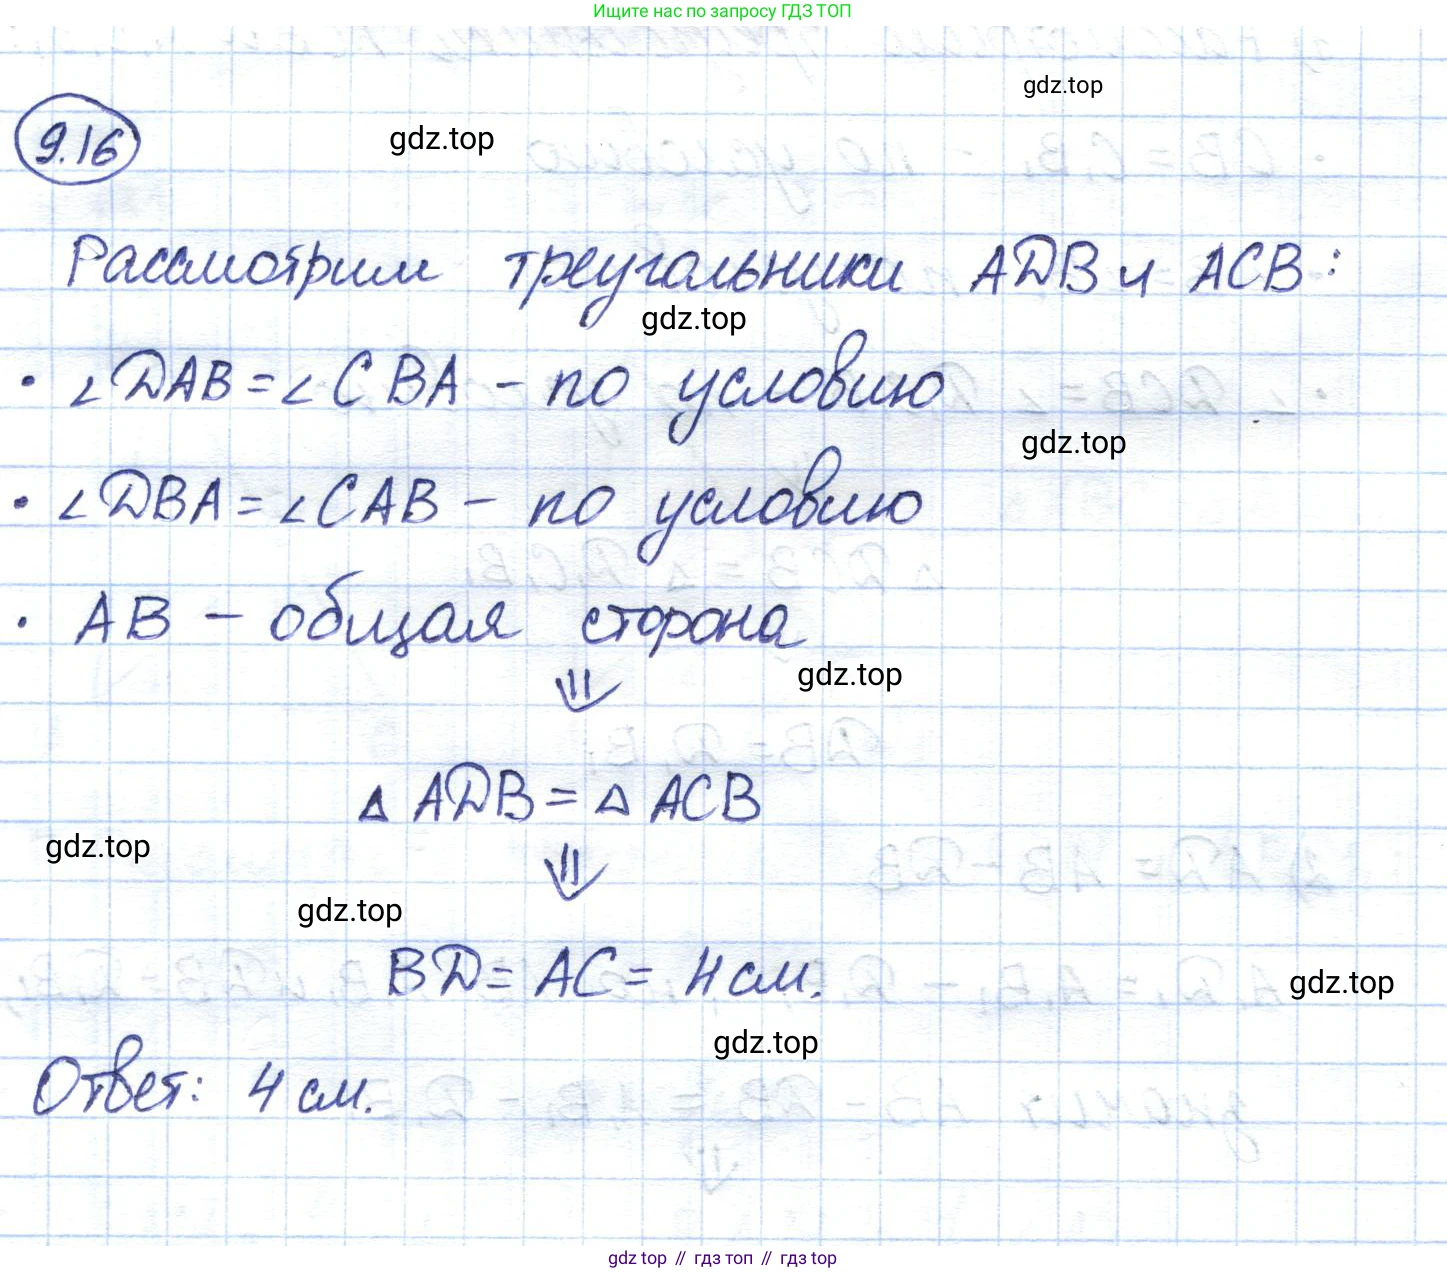 Ищите нас по запросу ГДЗ ТОП
gdz.top
9.16
gdz.top
Рассмотрим треугольники ADB и ACB:
gdz.top
• ∠DAB = ∠CBA - по условию
gdz.top
• ∠DBA = ∠CAB - по условию
• AB - общая сторона
gdz.top
⇓
△ ADB = △ ACB
gdz.top
⇓
gdz.top
BD = AC = 4 см.
gdz.top
gdz.top
Ответ: 4 см.
gdz.top // гдз топ // гдз top